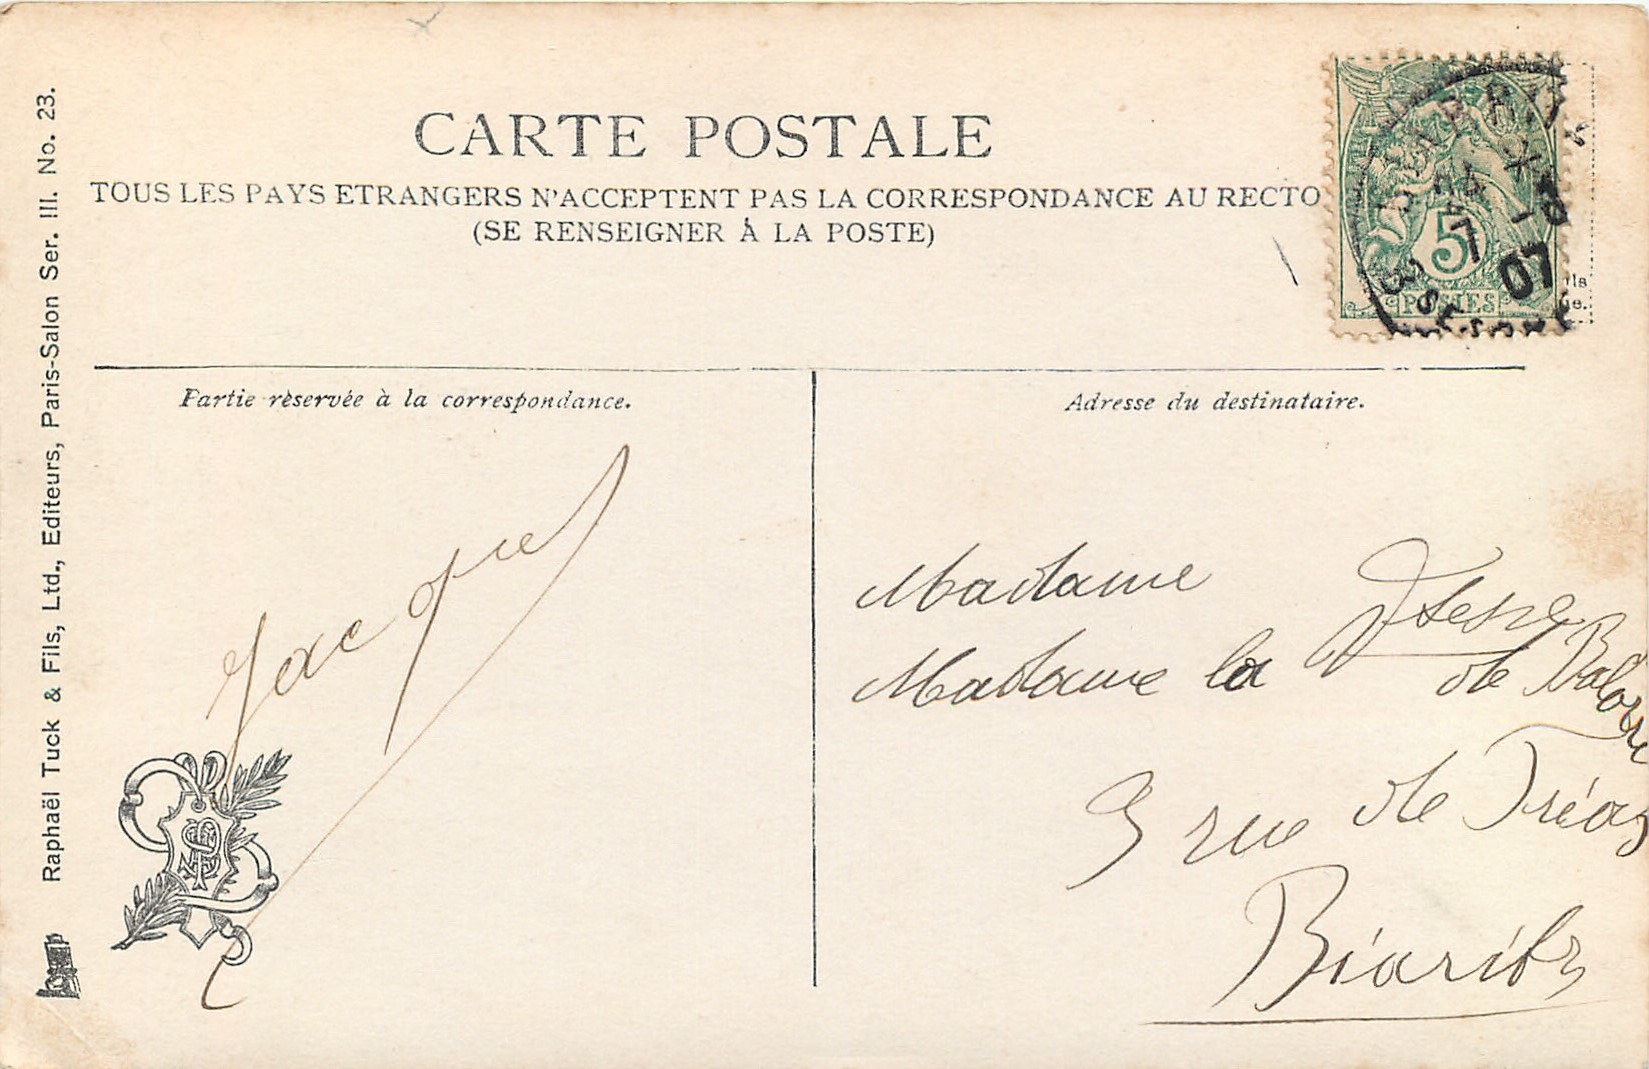 CARTE POSTALE
TOUS LES PAYS ETRANGERS N'ACCEPTENT PAS LA CORRESPONDANCE AU RECTO
(SE RENSEIGNER À LA POSTE)
5
POSTES
7
07
ils
e.
Raphaël Tuck & Fils, Ltd., Editeurs, Paris-Salon Ser. III. No. 23.
Partie rèservée à la correspondance.
Jacques
Adresse du destinataire.
Madame
Madame la
de
3 rue de
Biaritz